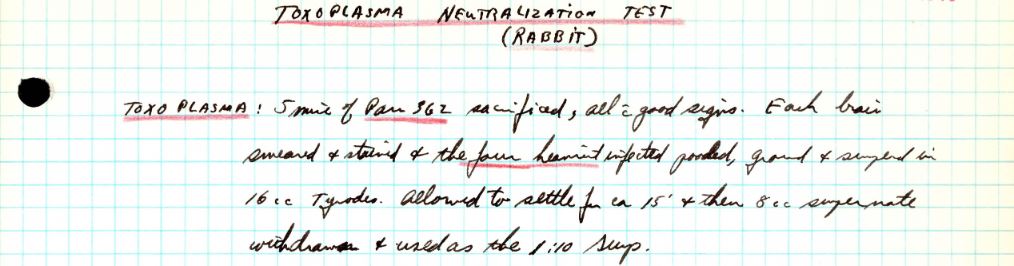 TOXOPLASMA NEUTRALIZATION TEST
(RABBIT)
TOXOPLASMA: 5 mice of Pass 362 sacrificed, all c̄ good signs. Each brain
smeared & stained & the four heaviest infected pooled, ground & suspend in
16 cc Tyrodes. Allowed to settle for ca 15' & then 8 cc supernate
withdrawn & used as the 1:10 susp.